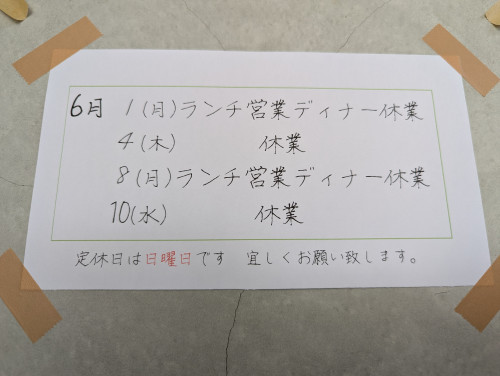 6月 1(月)ランチ営業ディナー休業
4(木) 休業
8(月)ランチ営業ディナー休業
10(水) 休業
定休日は日曜日です 宜しくお願い致します。